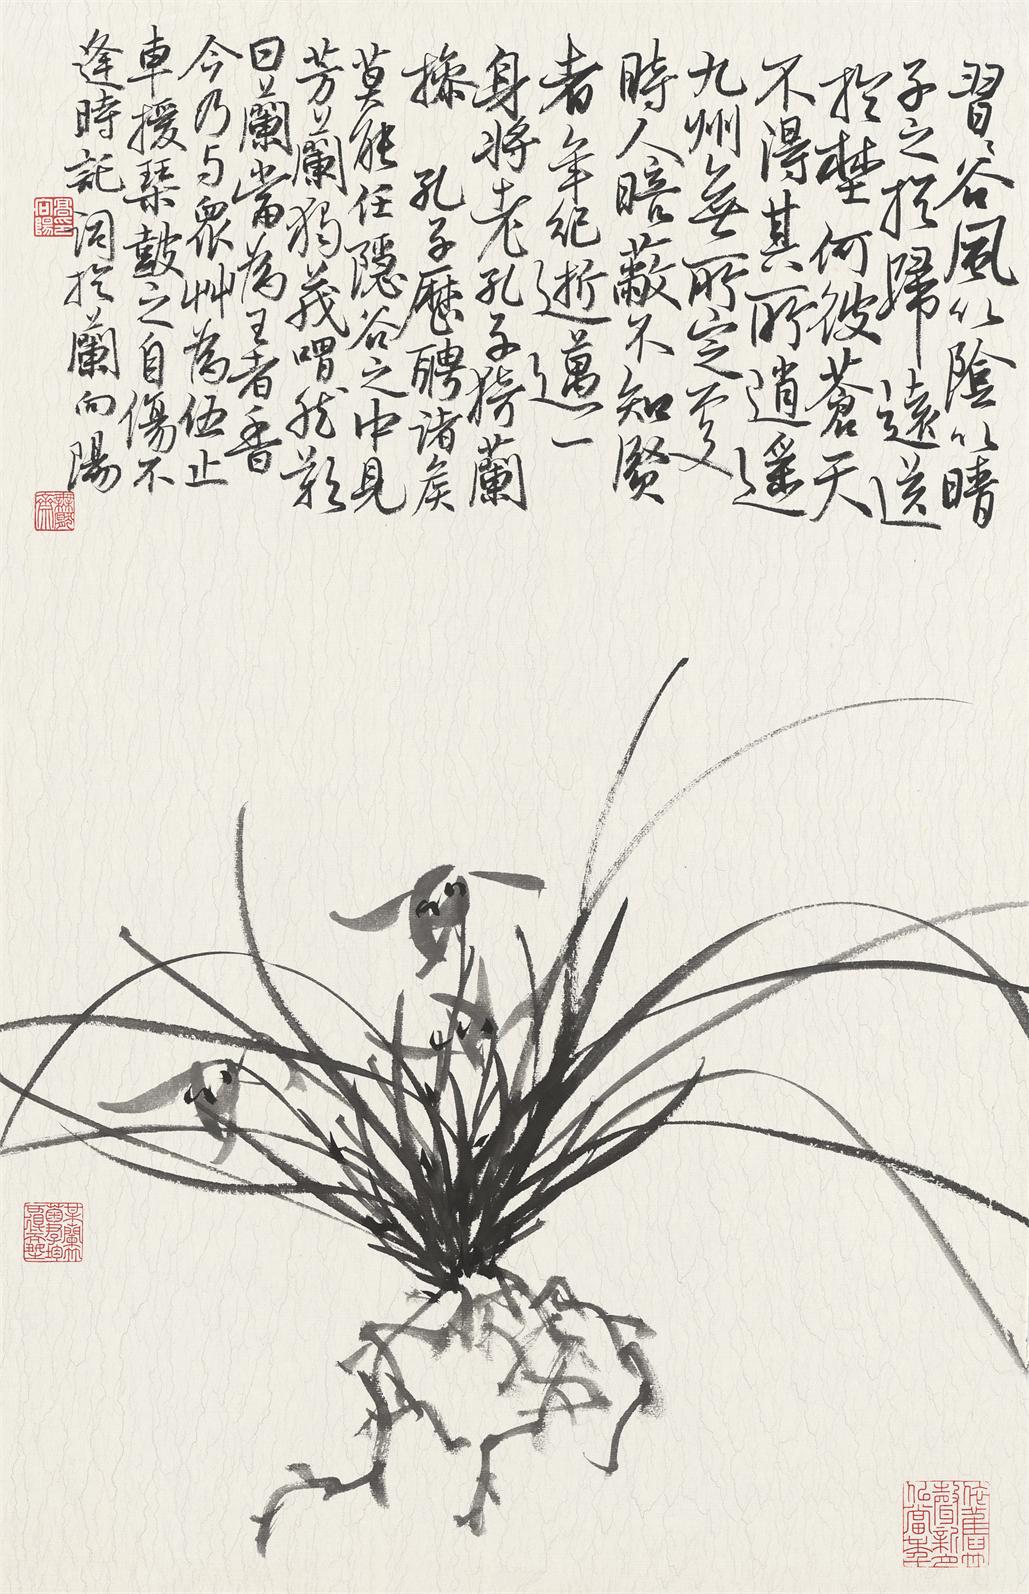 習習谷風以陰以晴
子之於歸遠送
於埜何彼蒼天
不得其所逍遥
九州無所定処
時人暗蔽不知賢
者年纪逝邁一
身將老孔子猗蘭
操 孔子歷聘諸矦
莫能任隱谷之中見
芳蘭獨茂喟然歎
曰蘭當為王者香
今乃与眾艸為伍止
車援琴鼓之自傷不
逢時託詞於蘭向陽